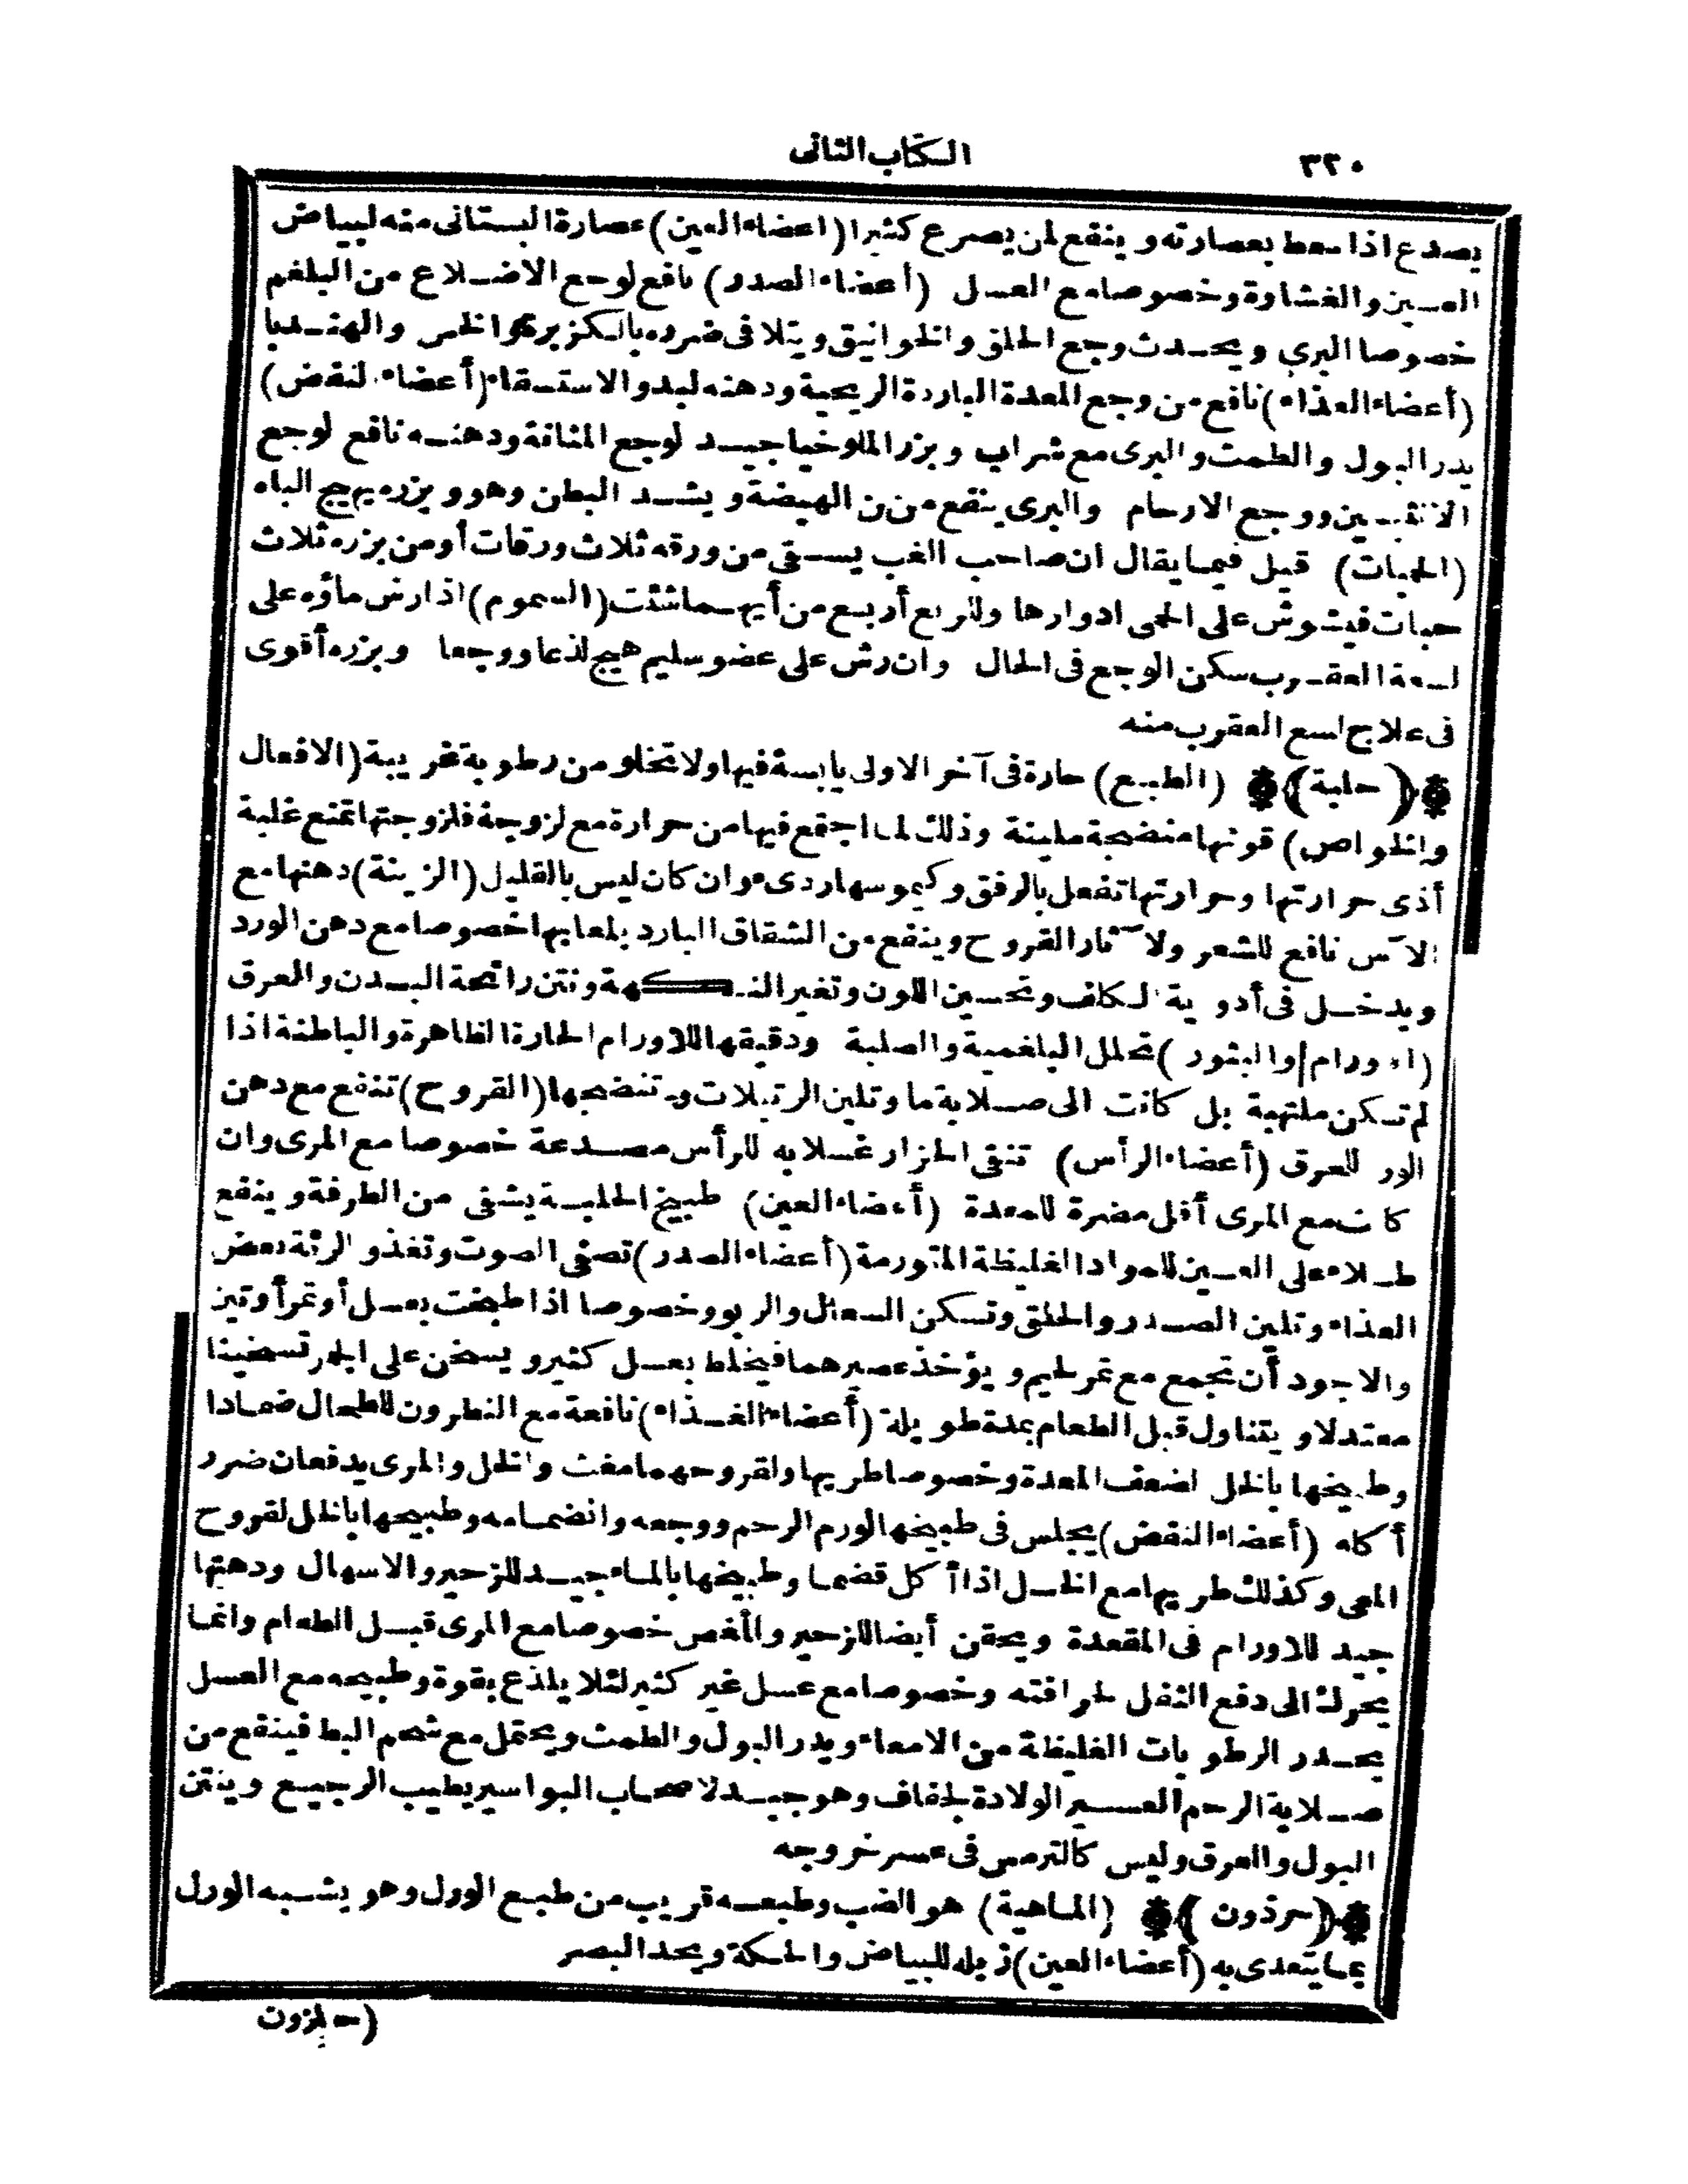 ٣٢٠
الكتاب الثانى
يصدع اذا سعط بعصارته وينفع لمن يصرع كثيرا (اعضاء العين) عصارة البستانى منه لبياض
العين والغشاوة وخصوصا مع العسل (أعضاء الصدر) نافع لوجع الاضلاع من البلغم
خصوصا البرى ويحدث وجع الحلق والخوانيق ويتلافى ضرره بالكزبرة والخس والهندبا
(أعضاء الغذاء) نافع من وجع المعدة الباردة الريحية ودهنه لبدو الاستسقاء (أعضاء النفض)
يدر البول والطمث والبرى مع شراب وبزر الملوخيا جيد لوجع المثانة ودهنه نافع لوجع
الانثيين ووجع الارحام والبرى ينفع من الهيضة ويشد البطن وهو وبزره يهيج الباه
(الحميات) قيل فيما يقال ان صاحب الغب يسقى من ورقه ثلاث ورقات أو من بزره ثلاث
حبات فيشوش على الحمى ادوارها وللربع أربع من أيهما شئت (السموم) اذا رش ماؤه على
لسعة العقرب سكن الوجع فى الحال وان رش على عضو سليم هيج لذعا ووجعا وبزره أقوى
فى علاج لسع العقرب منه
(حلبة) (الطبع) حارة فى آخر الاولى يابسة فيها ولا تخلو من رطوبة غريبة (الافعال
والخواص) قوتها منضجة ملينة وذلك لما اجتمع فيها من حرارة مع لزوجة فلزوجتها تمنع غلبة
أذى حرارتها وحرارتها تفعل بالرفق وكيموسها ردىء وان كان ليس بالقليل (الزينة) دهنها مع
الآس نافع للشعر ولآثار القروح وينفع من الشقاق البارد بلعابها خصوصا مع دهن الورد
ويدخل فى أدوية الكلف وتحسين اللون وتغير النكهة ونتن رائحة البدن والعرق
(الاورام والبثور) تحلل البلغمية والصلبة ودقيقها للاورام الحارة الظاهرة والباطنة اذا
لم تكن ملتهبة بل كانت الى صلابة ما وتلين الدبيلات وتنضجها (القروح) تنفع مع دهن
الورد للحرق (أعضاء الرأس) تنقى الحزاز غسلا به للرأس مصدعة خصوصا مع المرى وان
كانت مع المرى أقل مضرة للمعدة (أعضاء العين) طبيخ الحلبة يشفى من الطرفة وينفع
طلاء على العين للمواد الغليظة المتورمة (أعضاء الصدر) تصفى الصوت وتغذو الرئة بعض
الغذاء وتلين الصدر والحلق وتسكن السعال والربو وخصوصا اذا طبخت بعسل أو تمر أو تين
والاجود أن تجمع مع تمر لحيم ويؤخذ عصيرهما فيخلط بعسل كثير ويسخن على الجمر تسخينا
معتدلا ويتناول قبل الطعام بمدة طويلة (أعضاء الغذاء) نافعة مع النطرون للطحال ضمادا
وطبيخها بالخل لضعف المعدة وخصوصا طريها ولقروحها مامغث والخل والمرى يدفعان ضرر
أكله (أعضاء النفض) يجلس فى طبيخها لورم الرحم ووجعه وانضمامه وطبيخها بالخل لقروح
المعى وكذلك طريها مع الخل اذا أكل قضما وطبيخها بالماء جيد للزحير والاسهال ودهنها
جيد للاورام فى المقعدة ويحقن أيضا للزحير والمغص خصوصا مع المرى قبل الطعام وانما
يحرك الى دفع الثفل لحرافته وخصوصا مع عسل غير كثير لئلا يلذع بقوة وطبيخه مع العسل
يحدر الرطوبات الغليظة من الامعاء ويدر البول والطمث ويحتمل مع شحم البط فينفع من
صلابة الرحم العسير الولادة لجفاف وهو جيد لاصحاب البواسير يطيب الرجيع وينتن
البول والعرق وليس كالترمس فى عسر خروجه
(حرذون) (الماهية) هو الضب وطبعه قريب من طبع الورل وهو يشبه الورل
بما يتعدى به (أعضاء العين) زبله للبياض والحكة ويحد البصر
(حلزون